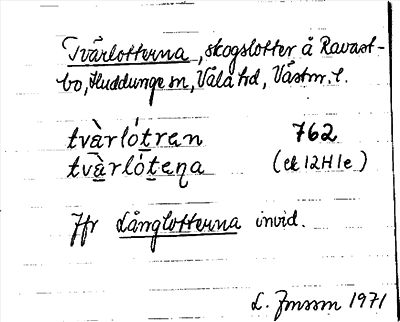 Tvärlotterna, skogslotter å Ravast-
bo, Huddunge sn, Våla hd, Västm. l.
tvàrlótren 762
tvàrlótena (ek 12H1e)
Jfr Långlotterna invid.
L. Jonsson 1971